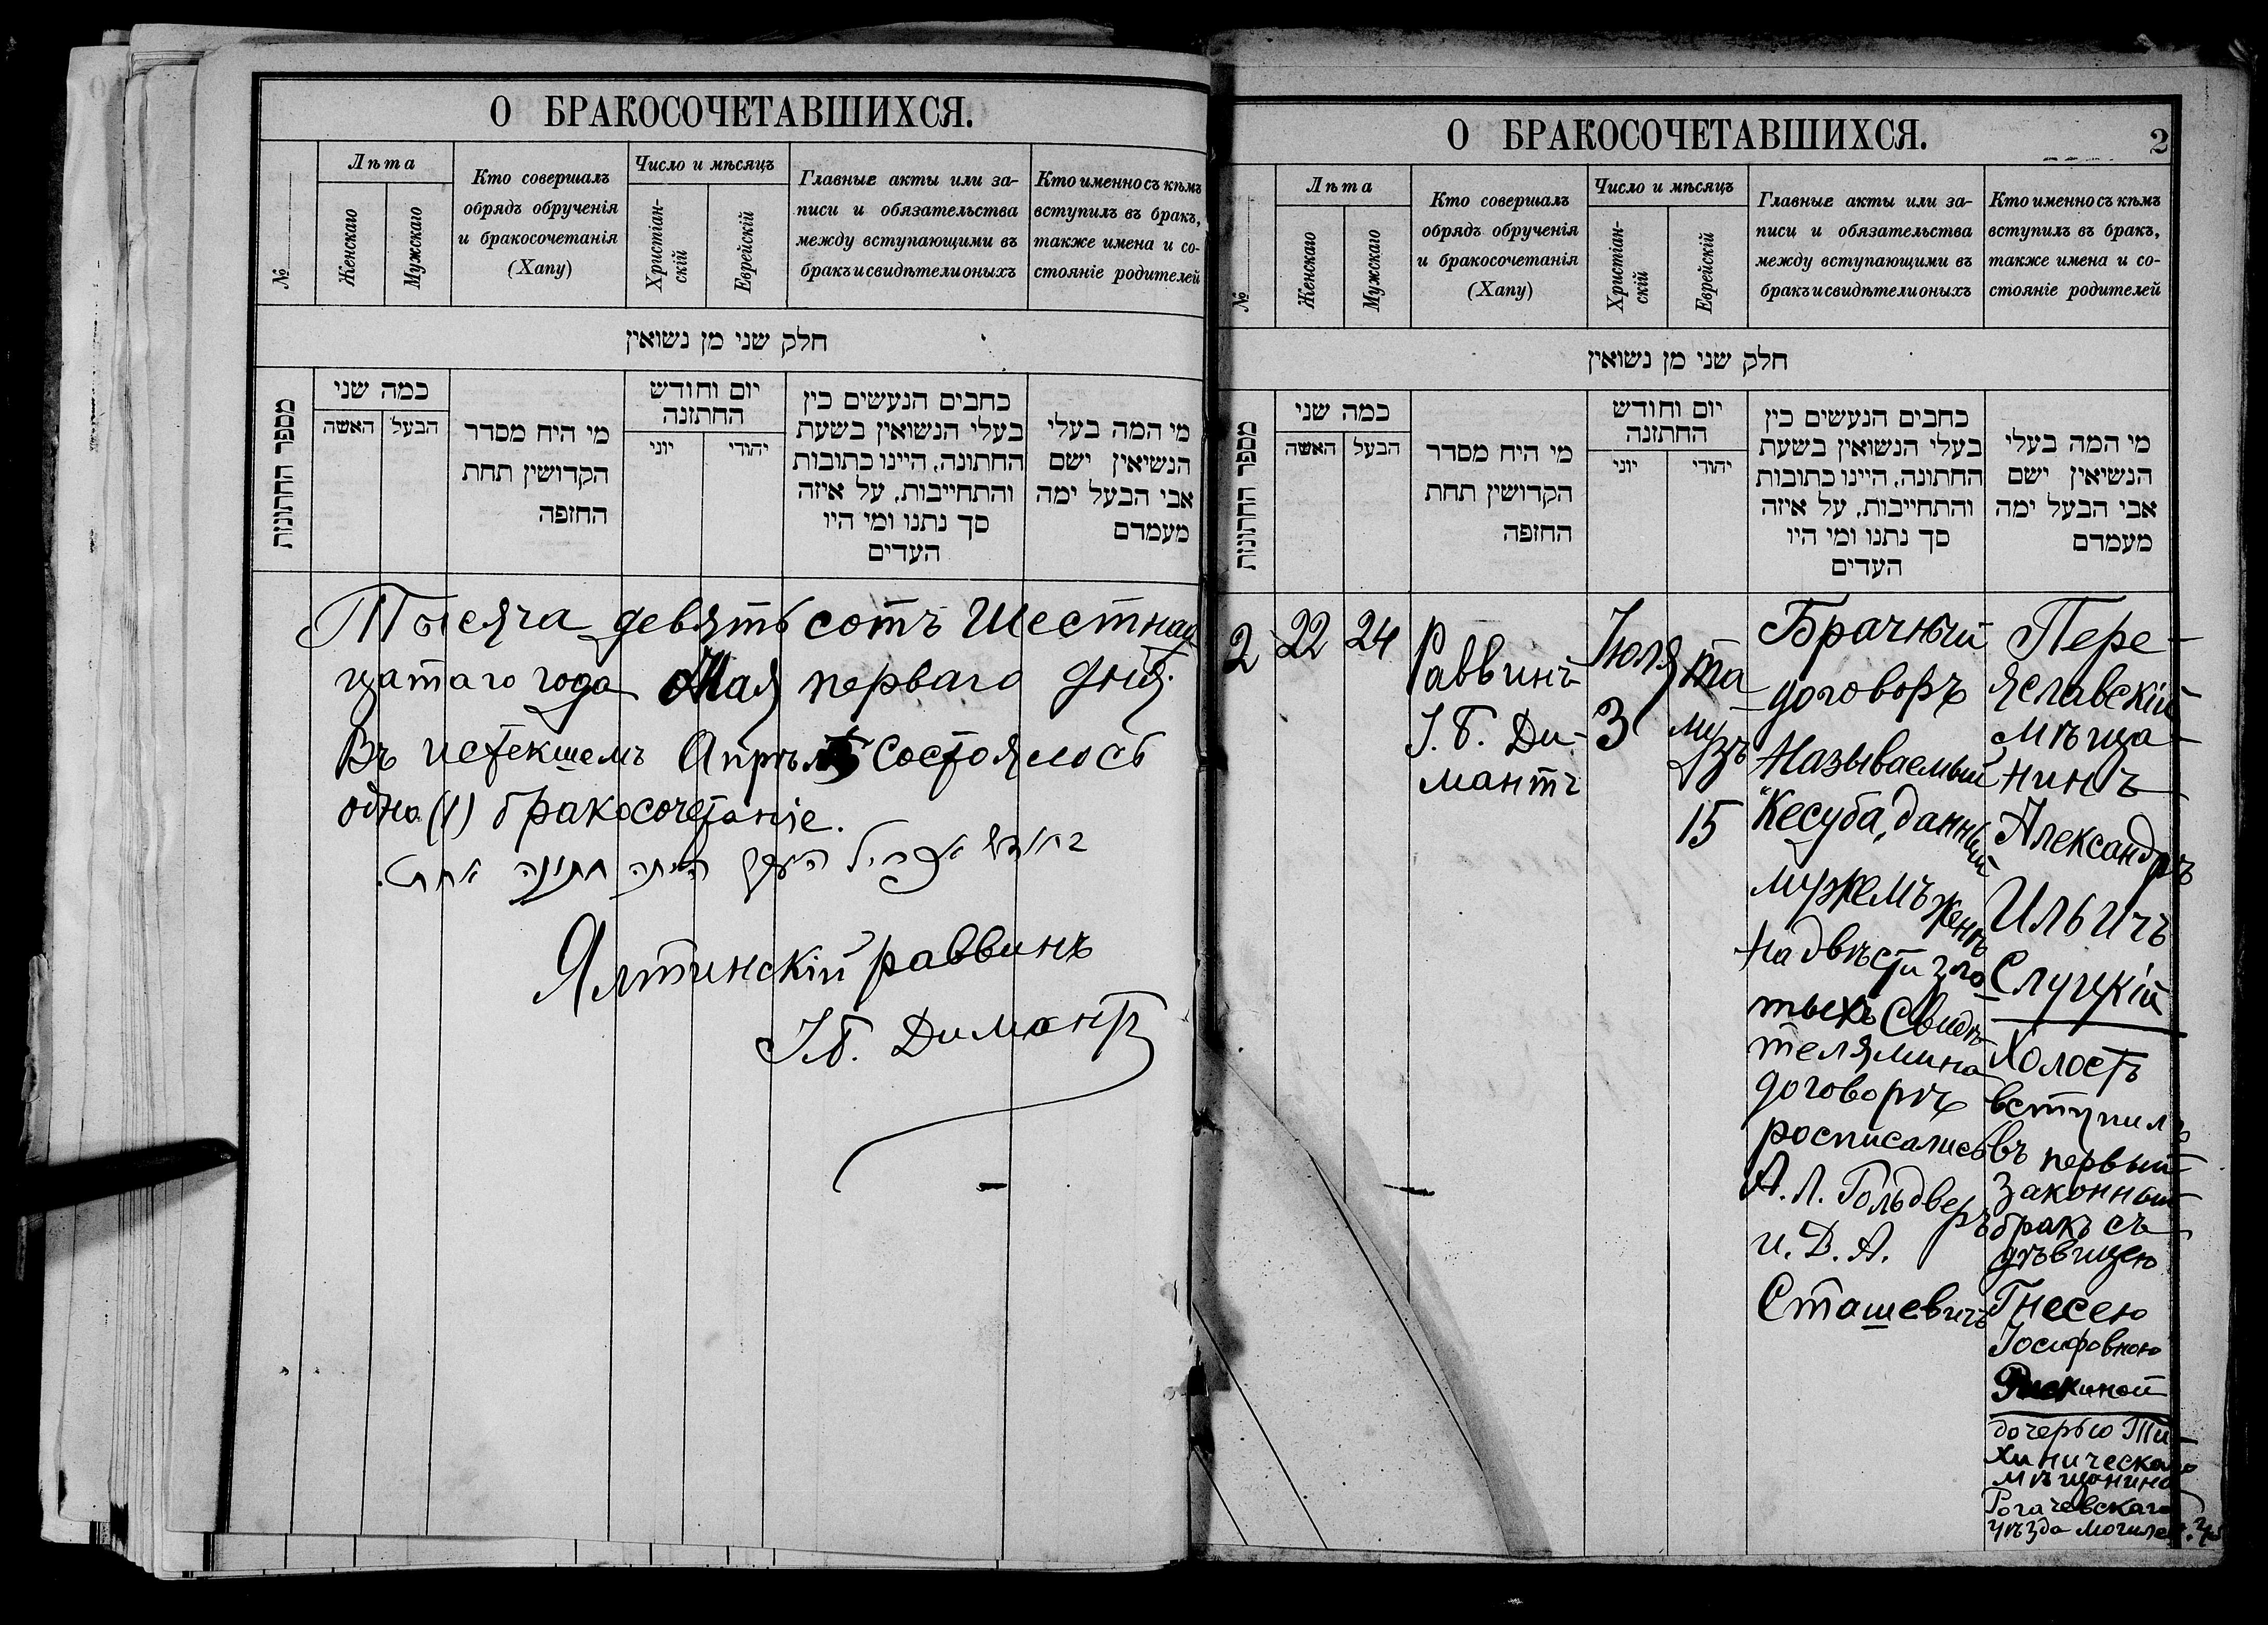 О БРАКОСОЧЕТАВШИХСЯ.
№
Лѣта
Женскаго
Мужскаго
Кто совершалъ
обрядъ обрученія
и бракосочетанія
(Хапу)
Число и мѣсяцъ
Христіан-
скій
Еврейскій
Главные акты или за-
писи и обязательства
между вступающими въ
бракъ и свидѣтели оныхъ
Кто именно съ кѣмъ
вступилъ въ бракъ,
также имена и со-
стояніе родителей
חלק שני מן נשואין
מספר החתונות
כמה שני
האשה
הבעל
מי היח מסדר
הקדושין תחת
החופה
יום וחודש
החתונה
יוני
יהודי
כתבים הנעשים בין
בעלי הנשואין בשעת
החתונה, היינו כתובות
והתחייבות, על איזה
סך נתנו ומי היו
העדים
מי המה בעלי
הנשיאין ישם
אבי הבעל ימה
מעמדם
Тысяча девятьсотъ Шестнад
цатаго года Мая перваго дня.
Въ истекшемъ Апрѣлѣ состоялось
одно (1) бракосочетаніе.
בחודש אפריל העבר היתה חתונה אחת.
Ялтинскій раввинъ
І.Б. Димантъ
О БРАКОСОЧЕТАВШИХСЯ.
2
№
Лѣта
Женскаго
Мужскаго
Кто совершалъ
обрядъ обрученія
и бракосочетанія
(Хапу)
Число и мѣсяцъ
Христіан-
скій
Еврейскій
Главные акты или за-
писи и обязательства
между вступающими въ
бракъ и свидѣтели оныхъ
Кто именно съ кѣмъ
вступилъ въ бракъ,
также имена и со-
стояніе родителей
חלק שני מן נשואין
מספר החתונות
כמה שני
האשה
הבעל
מי היח מסדר
הקדושין תחת
החופה
יום וחודש
החתונה
יוני
יהודי
כתבים הנעשים בין
בעלי הנשואין בשעת
החתונה, היינו כתובות
והתחייבות, על איזה
סך נתנו ומי היו
העדים
מי המה בעלי
הנשיאין ישם
אבי הבעל ימה
מעמדם
2
22
24
Раввинъ
І. Б. Ди-
мантъ
Іюля
3
та
му
зъ
15
Брачный
договоръ
Называемый
"Кесуба" данный
мужемъ женѣ
на двѣсти зло
тыхъ Свидѣ
телями на
договорѣ
росписались
А. Л. Гольдверъ
и. Д. А.
Сташевичъ
Пере-
яславскій
мѣща-
нинъ
Александръ
Ильичъ
Слуцкій
Холостъ
вступилъ
въ первый
законный
бракъ съ
дѣвицею
Гнесею
Іосифовною
Рискиной
дочерью Ти-
хиническаго
мѣщанина
Рогачевскаго
уѣзда Могилев. губ.